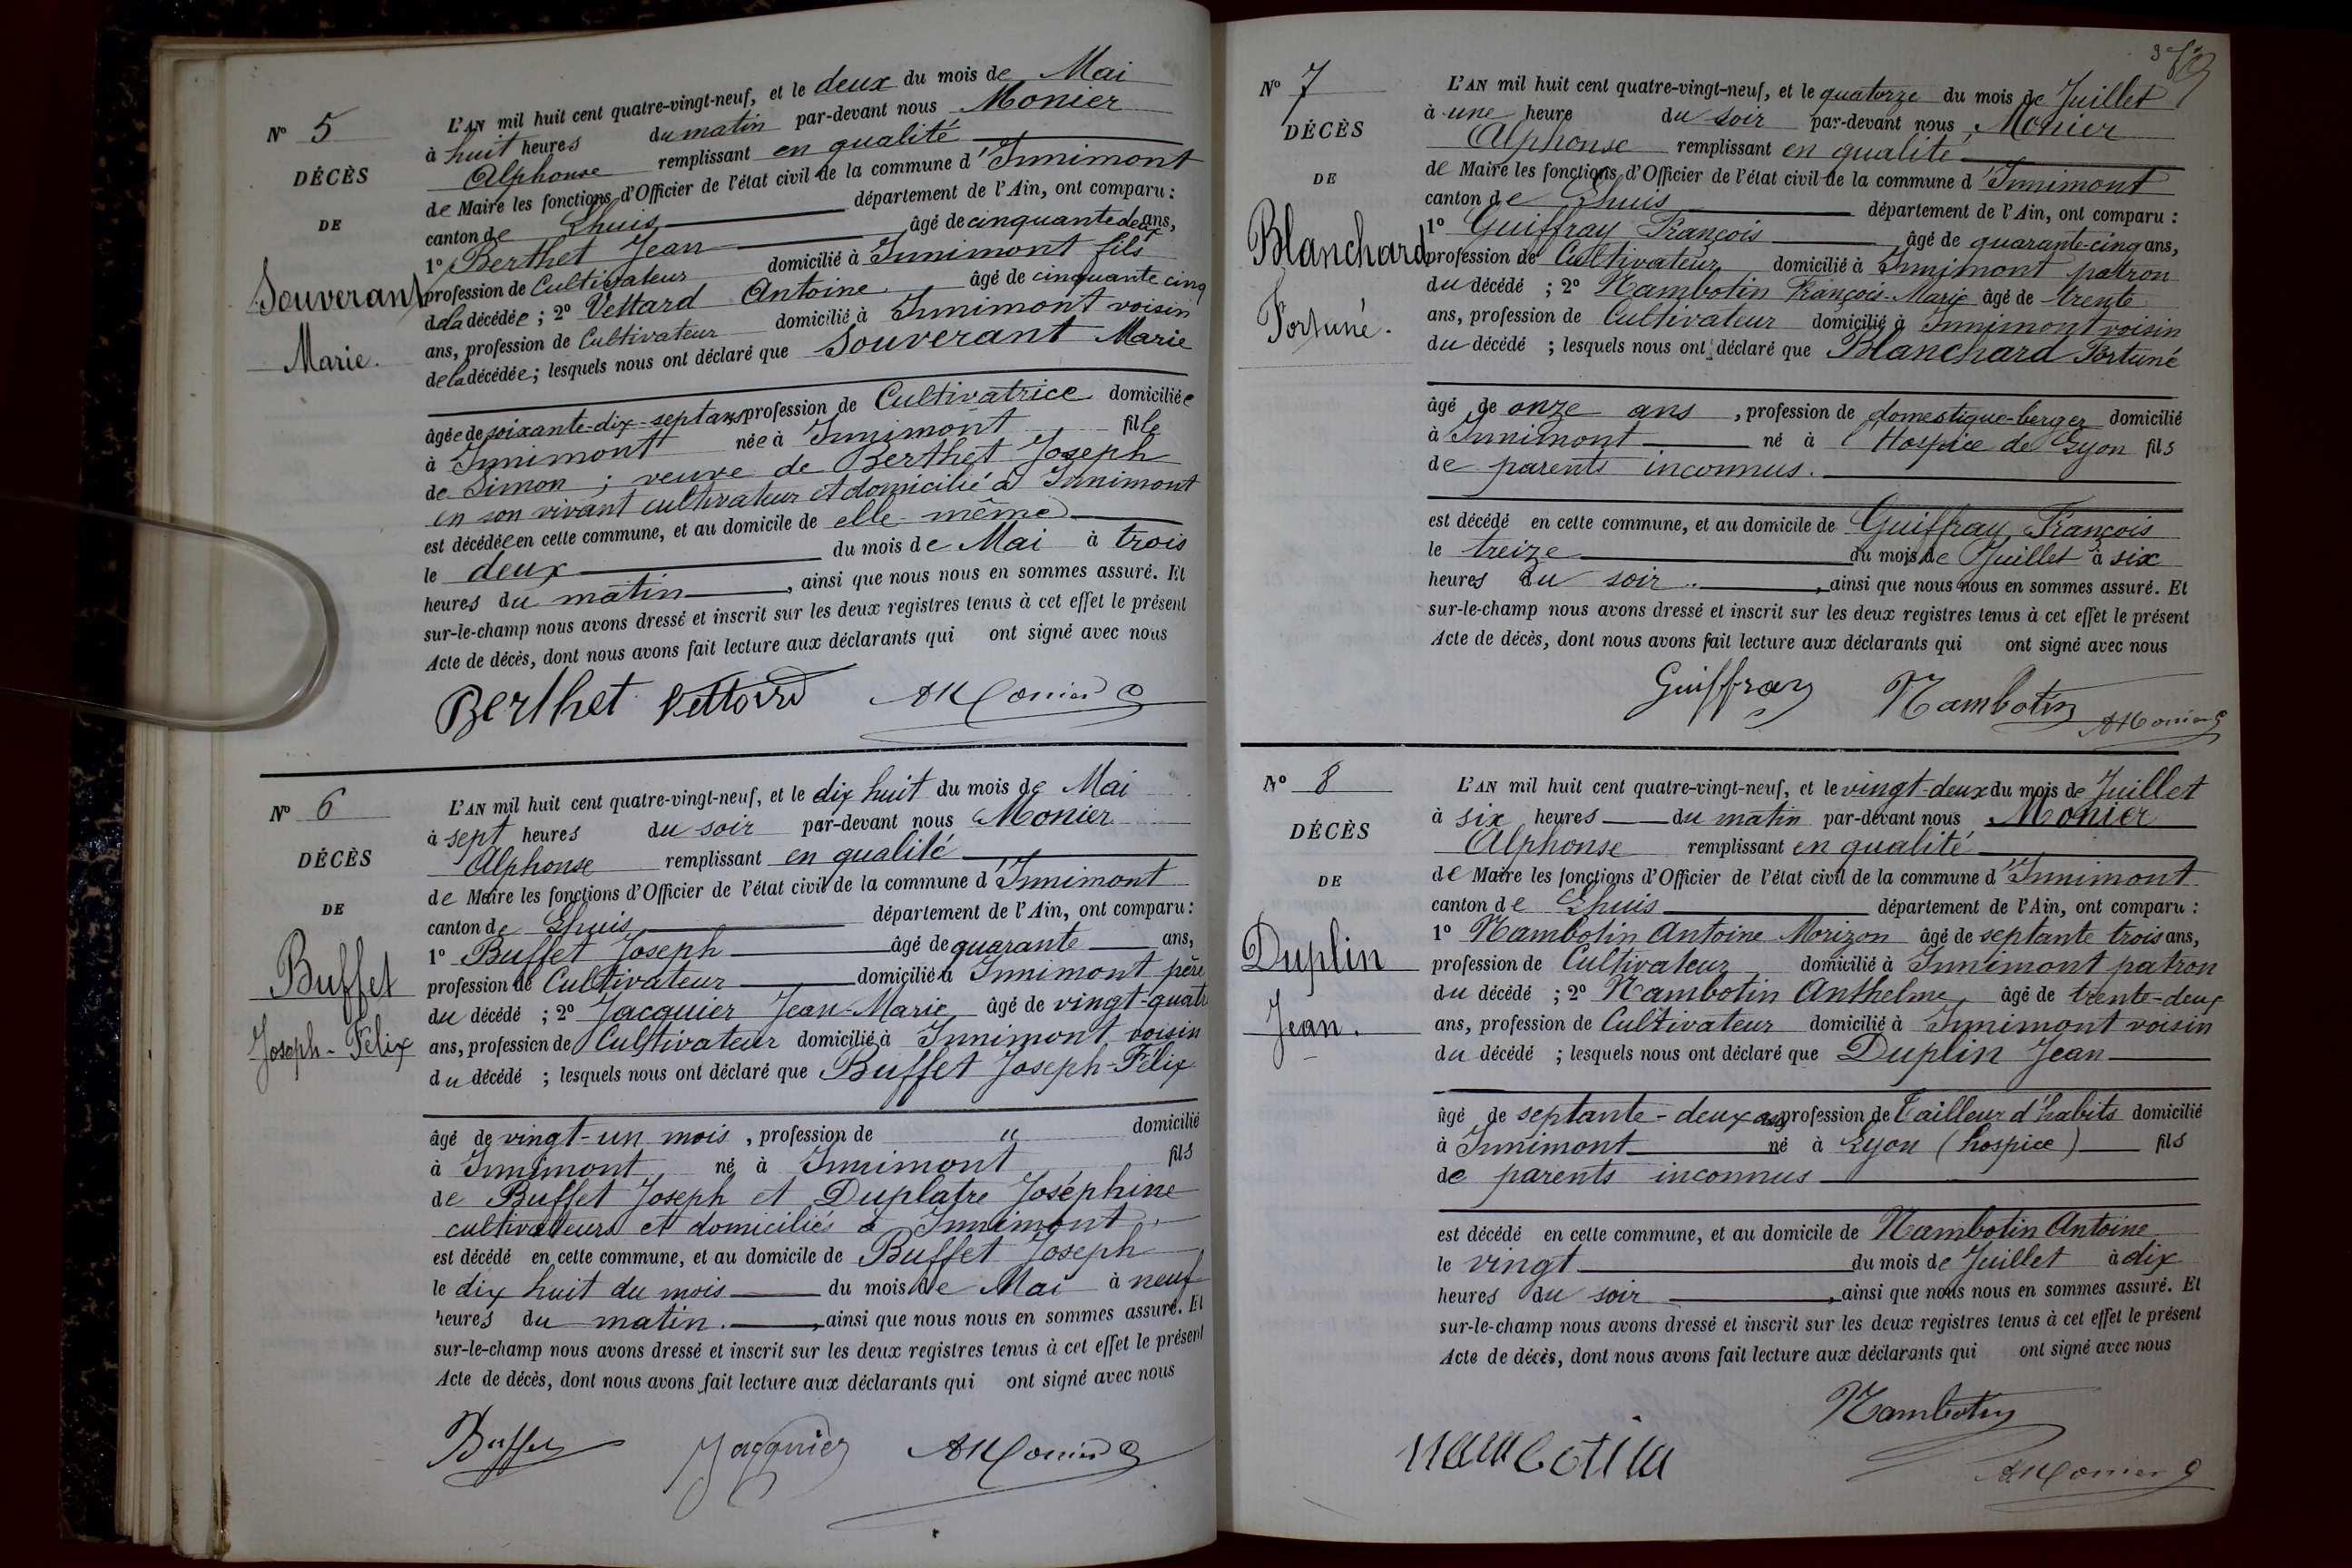 N° 5
DÉCÈS
DE
Souverant
Marie.
L'AN mil huit cent quatre-vingt-neuf, et le deux du mois de Mai
à huit heures du matin par-devant nous Monier
Alphonse remplissant en qualité
de Maire les fonctions d'Officier de l'état civil de la commune d'Innimont
canton de Lhuis département de l'Ain, ont comparu :
1° Berthet Jean âgé de cinquante deux ans,
profession de Cultivateur domicilié à Innimont fils
de la décédée ; 2° Vettard Antoine âgé de cinquante cinq
ans, profession de Cultivateur domicilié à Innimont voisin
de la décédée ; lesquels nous ont déclaré que Souverant Marie
âgée de soixante-dix-sept ans, profession de Cultivatrice domiciliée
à Innimont née à Innimont fille
de Simon ; veuve de Berthet Joseph
en son vivant cultivateur et domicilié à Innimont
est décédée en cette commune, et au domicile de elle-même
le deux du mois de Mai à trois
heures du matin, ainsi que nous nous en sommes assuré. Et
sur-le-champ nous avons dressé et inscrit sur les deux registres tenus à cet effet le présent
Acte de décès, dont nous avons fait lecture aux déclarants qui ont signé avec nous
Berthet Vettard AMonier
N° 6
DÉCÈS
DE
Buffet
Joseph-Félix
L'AN mil huit cent quatre-vingt-neuf, et le dix huit du mois de Mai
à sept heures du soir par-devant nous Monier
Alphonse remplissant en qualité
de Maire les fonctions d'Officier de l'état civil de la commune d'Innimont
canton de Lhuis département de l'Ain, ont comparu :
1° Buffet Joseph âgé de quarante ans,
profession de Cultivateur domicilié à Innimont père
du décédé ; 2° Jacquier Jean-Marie âgé de vingt-quatre
ans, profession de Cultivateur domicilié à Innimont, voisin
du décédé ; lesquels nous ont déclaré que Buffet Joseph-Félix
âgé de vingt-un mois, profession de " domicilié
à Innimont né à Innimont fils
de Buffet Joseph et Duplatre Joséphine
cultivateurs et domiciliés à Innimont.
est décédé en cette commune, et au domicile de Buffet Joseph
le dix huit du mois du mois de Mai à neuf
heures du matin., ainsi que nous nous en sommes assuré. Et
sur-le-champ nous avons dressé et inscrit sur les deux registres tenus à cet effet le présent
Acte de décès, dont nous avons fait lecture aux déclarants qui ont signé avec nous
Buffet Jacquier AMonier
N° 7
DÉCÈS
DE
Blanchard
Fortuné.
L'AN mil huit cent quatre-vingt-neuf, et le quatorze du mois de Juillet
à une heure du soir par-devant nous, Monier
Alphonse remplissant en qualité
de Maire les fonctions d'Officier de l'état civil de la commune d'Innimont
canton de Lhuis département de l'Ain, ont comparu :
1° Guiffray François âgé de quarante-cinq ans,
profession de Cultivateur domicilié à Innimont patron
du décédé ; 2° Nambotin François-Marie âgé de trente
ans, profession de Cultivateur domicilié à Innimont voisin
du décédé ; lesquels nous ont déclaré que Blanchard Fortuné
âgé de onze ans, profession de domestique-berger domicilié
à Innimont né à l'Hospice de Lyon fils
de parents inconnus.
est décédé en cette commune, et au domicile de Guiffray François
le treize du mois de Juillet à six
heures du soir., ainsi que nous nous en sommes assuré. Et
sur-le-champ nous avons dressé et inscrit sur les deux registres tenus à cet effet le présent
Acte de décès, dont nous avons fait lecture aux déclarants qui ont signé avec nous
Guiffray Nambotin AMonier
N° 8
DÉCÈS
DE
Duplin
Jean.
L'AN mil huit cent quatre-vingt-neuf, et le vingt-deux du mois de Juillet
à six heures du matin par-devant nous Monier
Alphonse remplissant en qualité
de Maire les fonctions d'Officier de l'état civil de la commune d'Innimont
canton de Lhuis département de l'Ain, ont comparu :
1° Nambotin Antoine Morizon âgé de septante trois ans,
profession de Cultivateur domicilié à Innimont patron
du décédé ; 2° Nambotin Anthelme, âgé de trente-deux
ans, profession de Cultivateur domicilié à Innimont voisin
du décédé ; lesquels nous ont déclaré que Duplin Jean
âgé de septante-deux ans, profession de Tailleur d'habits domicilié
à Innimont né à Lyon (hospice) fils
de parents inconnus
est décédé en cette commune, et au domicile de Nambotin Antoine
le vingt du mois de Juillet à dix
heures du soir, ainsi que nous nous en sommes assuré. Et
sur-le-champ nous avons dressé et inscrit sur les deux registres tenus à cet effet le présent
Acte de décès, dont nous avons fait lecture aux déclarants qui ont signé avec nous
Nambotin
nambotin AMonier